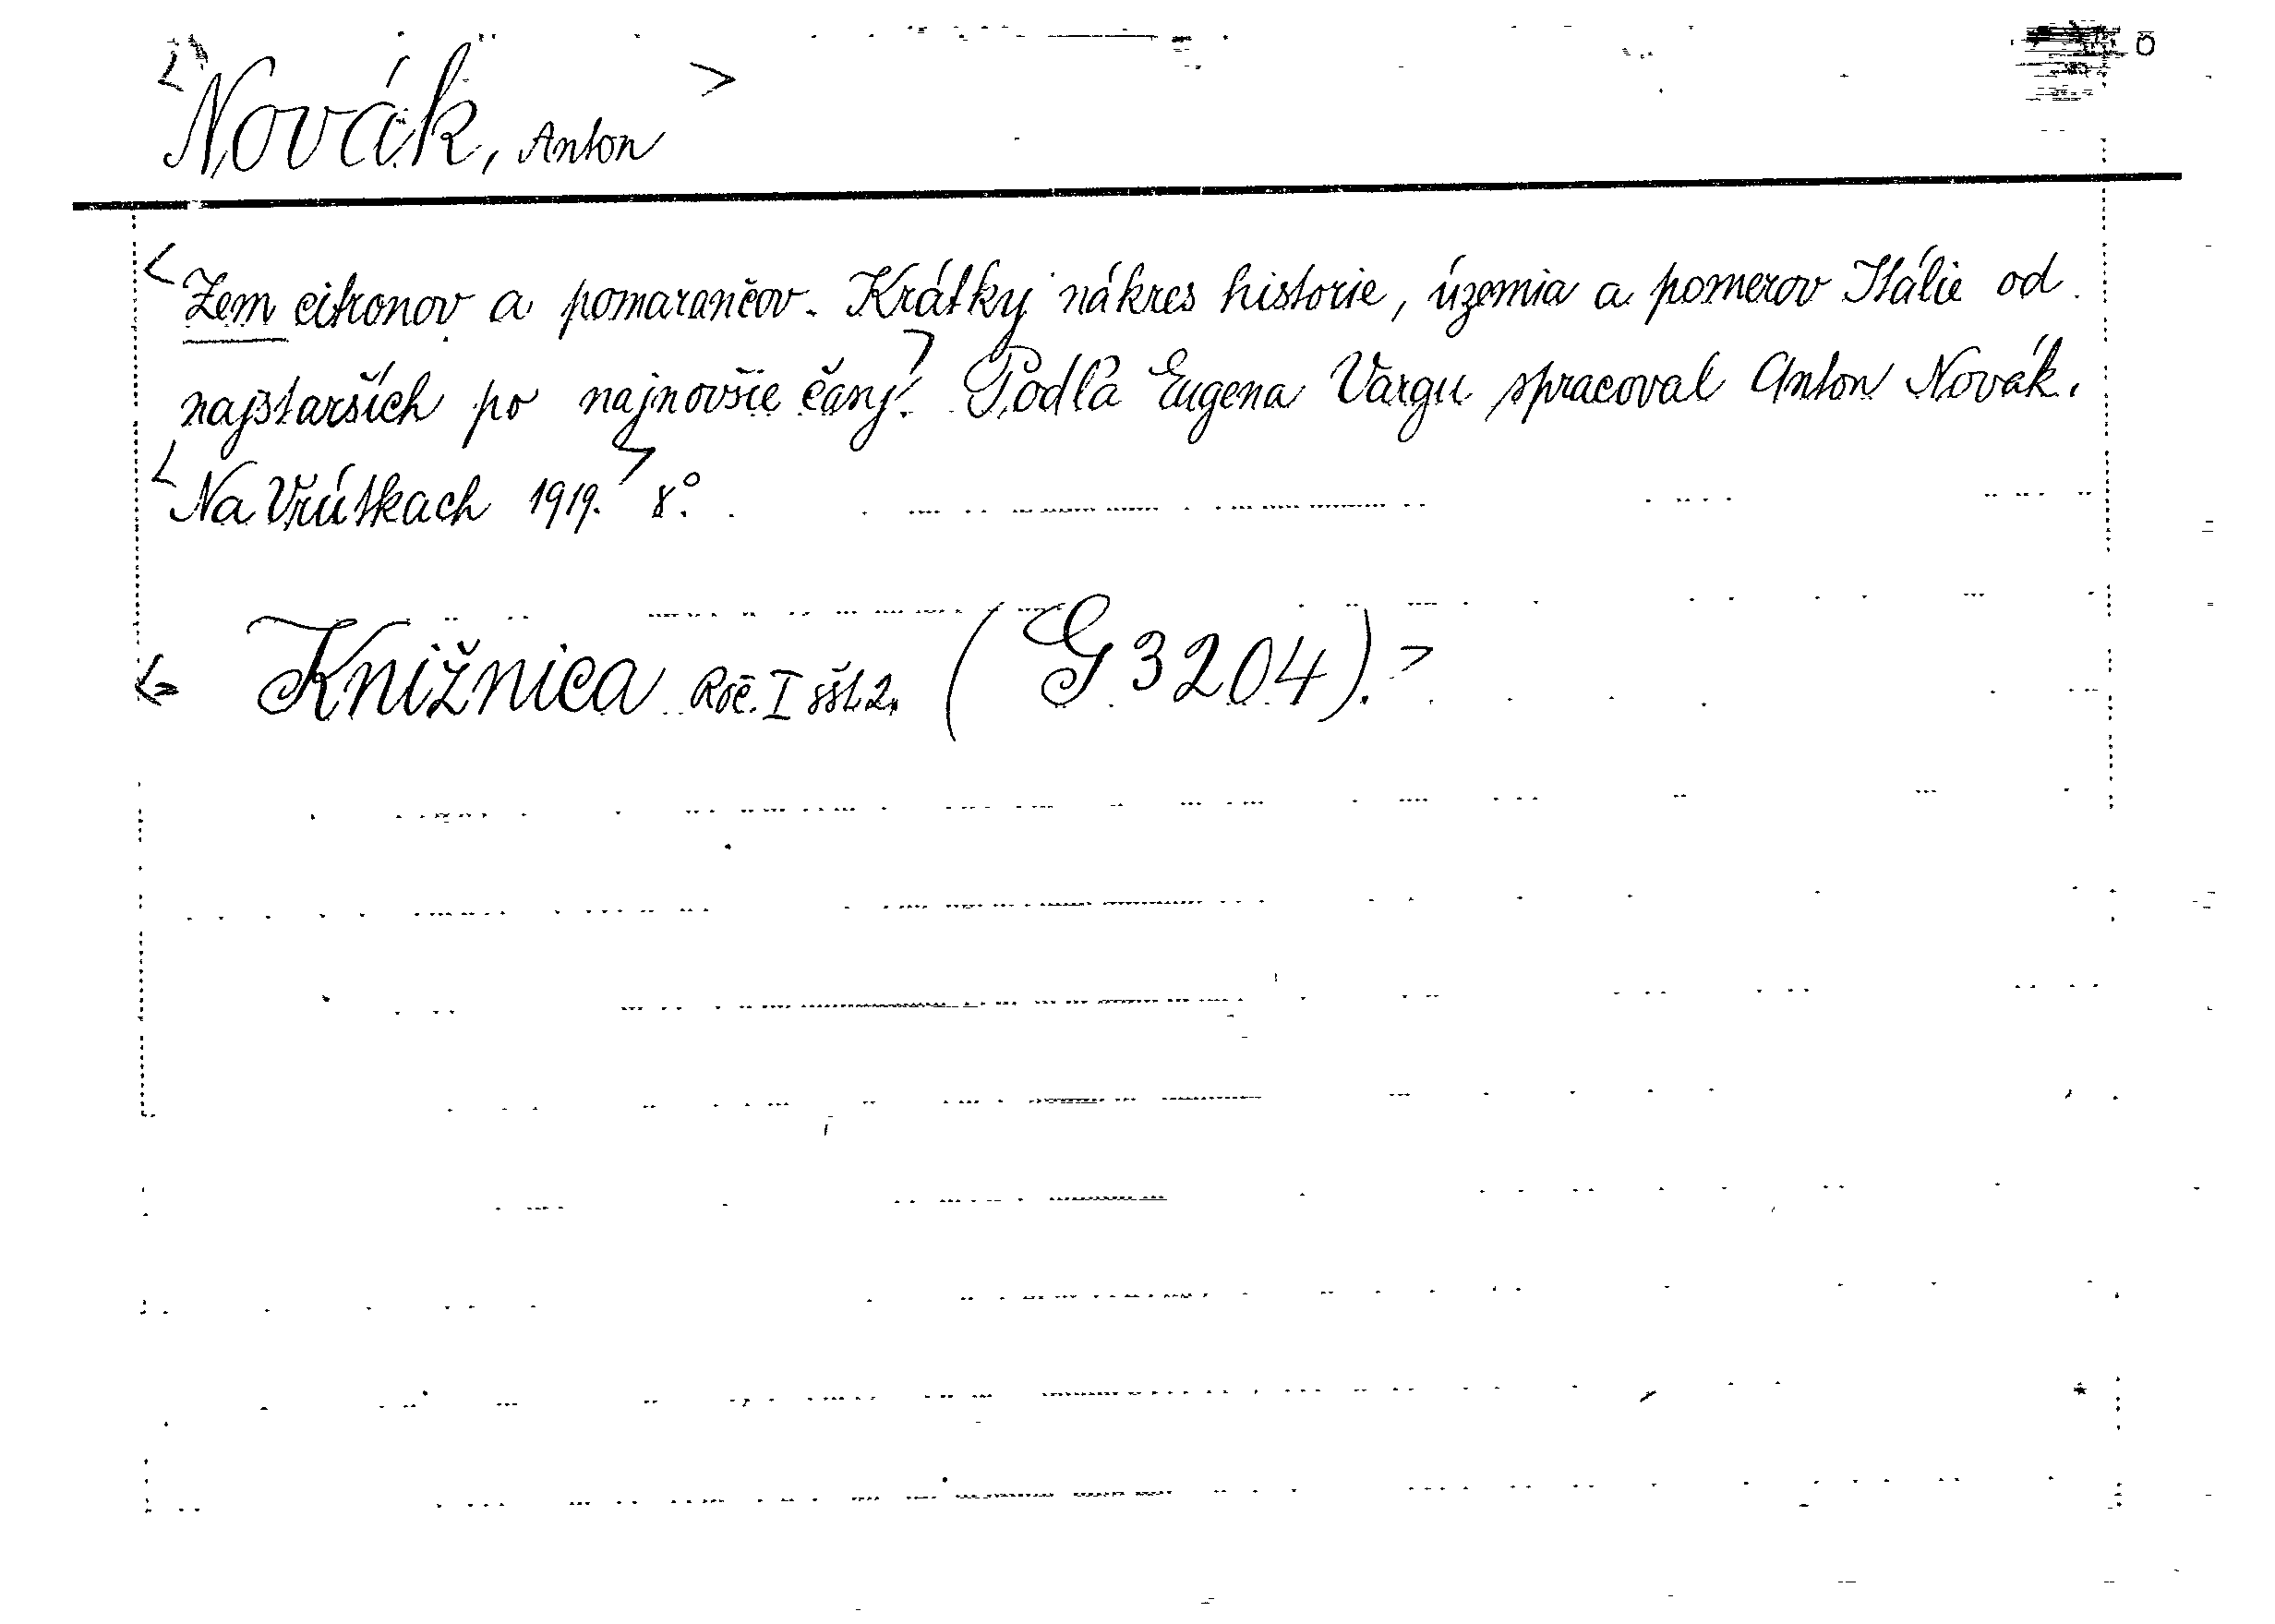 <Novák, Anton >
<Zem citronov a pomarančov. Krátky nákres historie, územia a pomerov Itálie od
najstarších po najnovšie časy.> Podľa Eugena Vargu spracoval Anton Novák.
<Na Vrútkach 1919.> 8°.
< Knižnica Roč. I sšt. 2. (G 3204).>